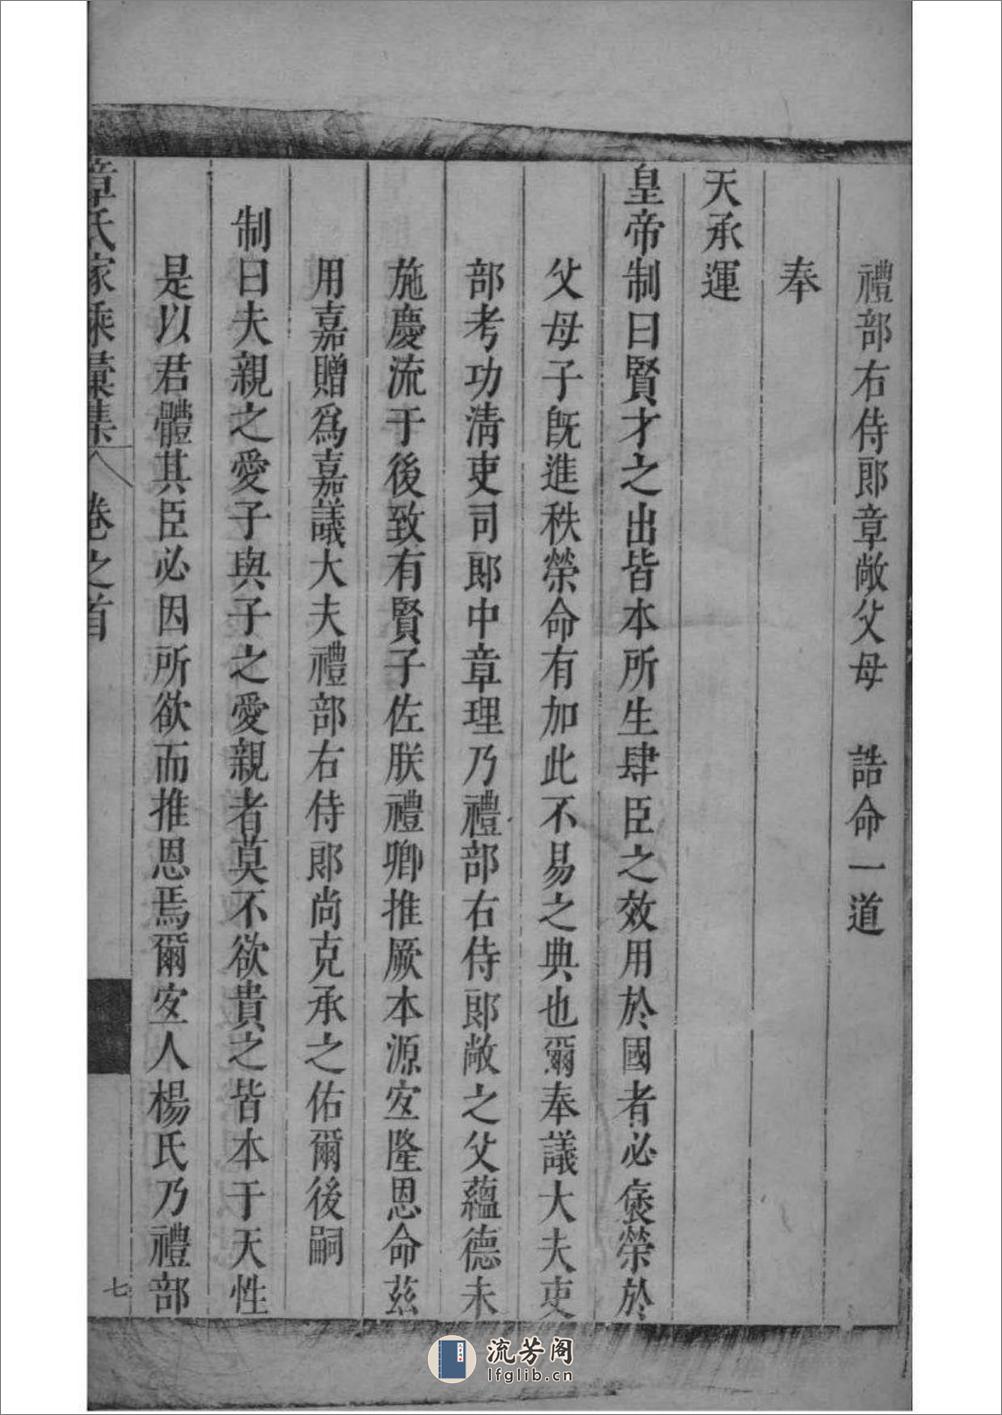 禮部右侍郎章敞父母　誥命一道
奉
天承運
皇帝制曰賢才之出皆本所生肆臣之效用於國者必褒榮於
父母子旣進秩榮命有加此不易之典也爾奉議大夫吏
部考功清吏司郎中章理乃禮部右侍郎敞之父蘊德未
施慶流于後致有賢子佐朕禮卿推厥本源宜隆恩命茲
用嘉贈爲嘉議大夫禮部右侍郎尚克承之佑爾後嗣
制曰夫親之愛子與子之愛親者莫不欲貴之皆本于天性
是以君體其臣必因所欲而推恩焉爾宜人楊氏乃禮部
章氏家乘彙集　卷之首
七
流芳阁
lfglib.cn